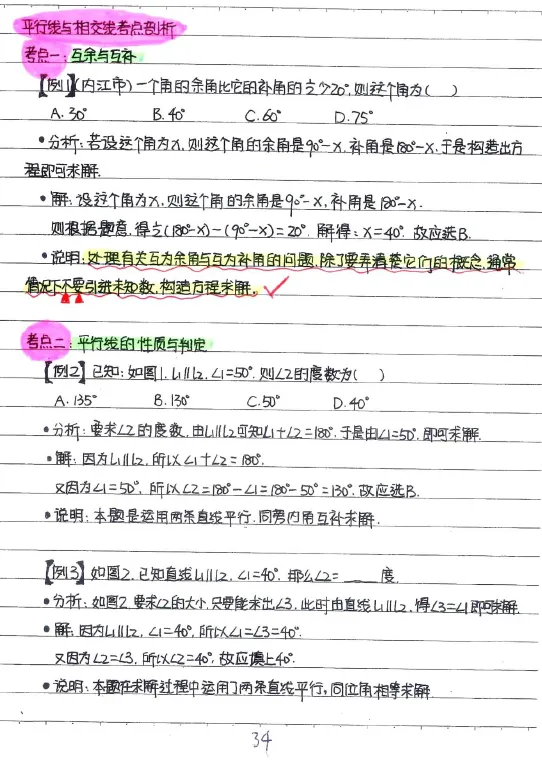 平行线与相交线考点剖析
考点一:互余与互补
【例1】(内江市)一个角的余角比它的补角的½少20°,则这个角为( )
A.30° B.40° C.60° D.75°
•分析:若设这个角为x,则这个角的余角是90°-x,补角是180°-x,于是构造出方
程即可求解.
•解:设这个角为x,则这个角的余角是90°-x,补角是180°-x.
则根据题意,得½(180°-x)-(90°-x)=20°.解得:x=40°.故应选B.
•说明:处理有关互为余角与互为补角的问题,除了要弄清楚它们的概念,通常
情况下不要引进未知数,构造方程求解.
考点二:平行线的性质与判定
【例2】已知:如图1,l1∥l2,∠1=50°,则∠2的度数为( )
A.135° B.130° C.50° D.40°
•分析:要求∠2的度数,由l1∥l2可知∠1+∠2=180°,于是由∠1=50°,即可求解.
•解:因为l1∥l2,所以∠1+∠2=180°.
又因为∠1=50°,所以∠2=180°-∠1=180°-50°=130°.故应选B.
•说明:本题是运用两条直线平行,同旁内角互补求解.
【例3】如图2,已知直线l1∥l2,∠1=40°,那么∠2=____度.
•分析:如图2,要求∠2的大小,只要能求出∠3,此时由直线l1∥l2,得∠3=∠1即可求解.
•解:因为l1∥l2,∠1=40°,所以∠1=∠3=40°.
又因为∠2=∠3,所以∠2=40°,故应填上40°.
•说明:本题在求解过程中运用了两条直线平行,同位角相等求解.
34